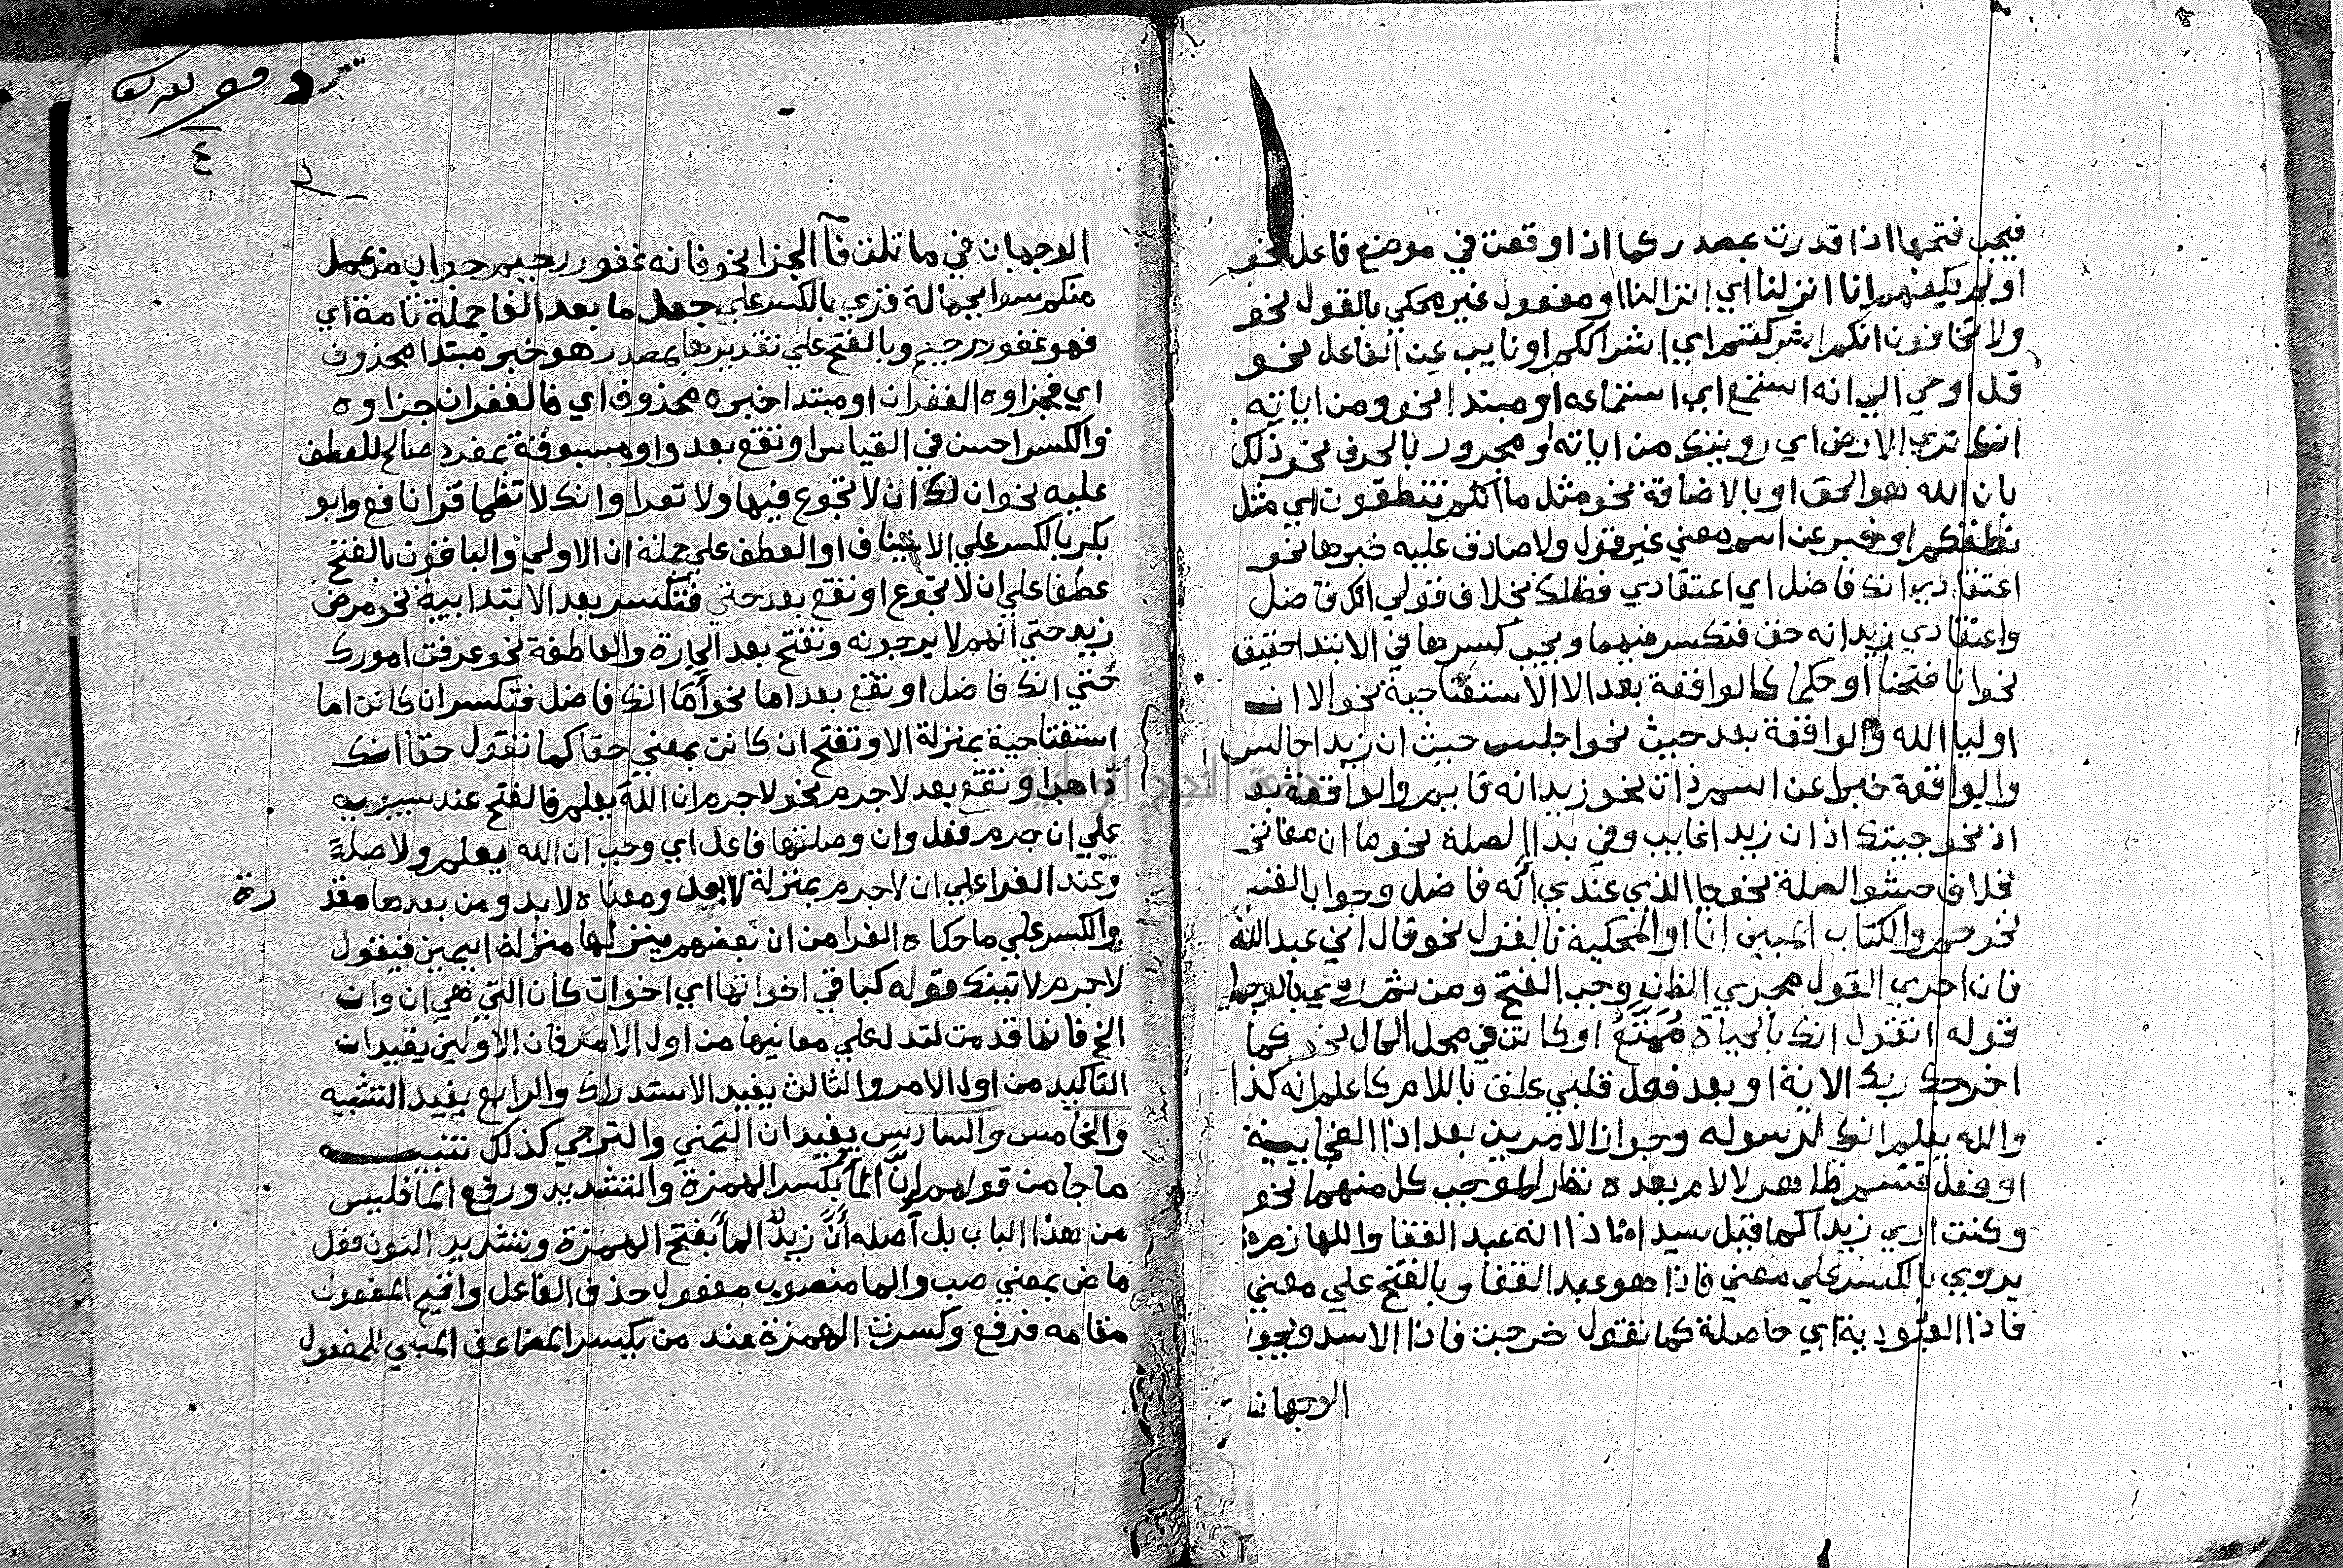 فيجب فتحها اذا قدرت بمصدر كما اذا وقعت في موضع فاعل نحو
اولم يكفهم انا انزلنا اي انزالنا او مفعول غير محكي بالقول نحو
ولا تخافون انكم اشركتم اي اشراككم او نايب عن الفاعل نحو
قل اوحي الي انه استمع اي استماعه او مبتدا نحو ومن اياته
انك تري الارض اي رويتك من اياته او مجرور بالحرف نحو ذلك
بان الله هو الحق او بالاضافة نحو مثل ما انكم تنطقون اي مثل
نطقكم او خبر عن اسم معني غير قول ولا صادق عليه خبرها نحو
اعتقادي انك فاضل اي اعتقادي فضلك بخلاف قولي انك فاضل
واعتقادي زيد انه حق فتكسر فيهما ويجب كسرها في الابتدا حقيقة
نحو انا فتحنا او حكما كالواقعة بعد الا الاستفتاحية نحو الا ان
اوليا الله والواقعة بعد حيث نحو اجلس حيث ان زيدا جالس
والواقعة خبرا عن اسم ذات نحو زيد انه قايم والواقعة بعد
اذ نحو جيتك اذ ان زيدا غايب وفي بدا الصلة نحو ما ان مفاتحه
بخلاف حشو الصلة نحو جا الذي عندي انه فاضل وجواب القسم
نحو حم والكتاب المبين انا او المحكية بالقول نحو قال اني عبد الله
فان اجري القول مجري الظن وجب الفتح ومن ثم روي بالوجهين
قوله اتقول انك بالحياة ممتع او كانت في محل الحال نحو كما
اخرجك ربك الاية او بعد فعل قلبي علق باللام كاعلم انه لذا
والله يعلم انك لرسوله وجواز الامرين بعد اذا الفجايية
او فعل قسم ظاهر لا لام بعده نظرا لموجب كل منهما نحو
وكنت اري زيدا كما قيل سيدا اذا انه عبد القفا واللهازم
يروي بالكسر علي معني فاذا هو عبد القفا وبالفتح علي معني
فاذا العبودية اي حاصلة كما تقول خرجت فاذا الاسد ويجوز
الوجهان
٤
الوجهان في ما تلت فآ الجزا نحو فانه غفور رحيم جواب من عمل
منكم سوا بجهالة قري بالكسر علي جعل ما بعد الفا جملة تامة اي
فهو غفور رحيم وبالفتح علي تقديرها بمصدر هو خبر مبتدا محذوف
اي فجزاوه الغفران او مبتدا خبره محذوف اي فالغفران جزاوه
والكسر احسن في القياس او تقع بعد واو مسبوقة بمفرد صالح للعطف
عليه نحو ان لك ان لا تجوع فيها ولا تعرا وانك لا تظما قرا نافع وابو
بكر بالكسر علي الاستيناف او العطف علي جملة ان الاولي والباقون بالفتح
عطفا علي ان لا تجوع او تقع بعد حتي فتكسر بعد الابتدايية نحو مرض
زيد حتي انهم لا يرجونه وتفتح بعد الجارة والعاطفة نحو عرفت امورك
حتي انك فاضل او تقع بعد اما نحو أما انك فاضل فتكسر ان كانت اما
استفتاحية بمنزلة الا وتفتح ان كانت بمعني حقا كما تقول حقا انك
ذاهب او تقع بعد لا جرم نحو لا جرم ان الله يعلم فالفتح عند سيبويه
علي ان جرم فعل وان وصلتها فاعل اي وجب ان الله يعلم ولا صلة
وعند الفرا علي ان لا جرم بمنزلة لا بد ومعناه لا بد ومن بعدها مقد
رة
والكسر علي ما حكاه الفرا من ان بعضهم ينزلها منزلة اليمين فيقول
لا جرم لاتينك قوله كبا في اخواتها اي اخوات كان التي هي ان وان
الخ فانها قدمت لتدل علي معانيها من اول الامر فان الاولين يفيدان
التاكيد من اول الامر والثالث يفيد الاستدراك والرابع يفيد التشبيه
والخامس والسادس يفيدان التمني والترجي كذلك تنبيه
ما جا من قولهم إنّ المآ بكسر الهمزة والتشديد ورفع الما فليس
من هذا الباب بل اصله أنّ زيدٌ المآ بفتح الهمزة وتشديد النون فعل
ماض بمعني صب والما منصوب مفعول حذف الفاعل واقيم المفعول
مقامه فرفع وكسرت الهمزة عند من يكسر المضاعف المبني للمفعول